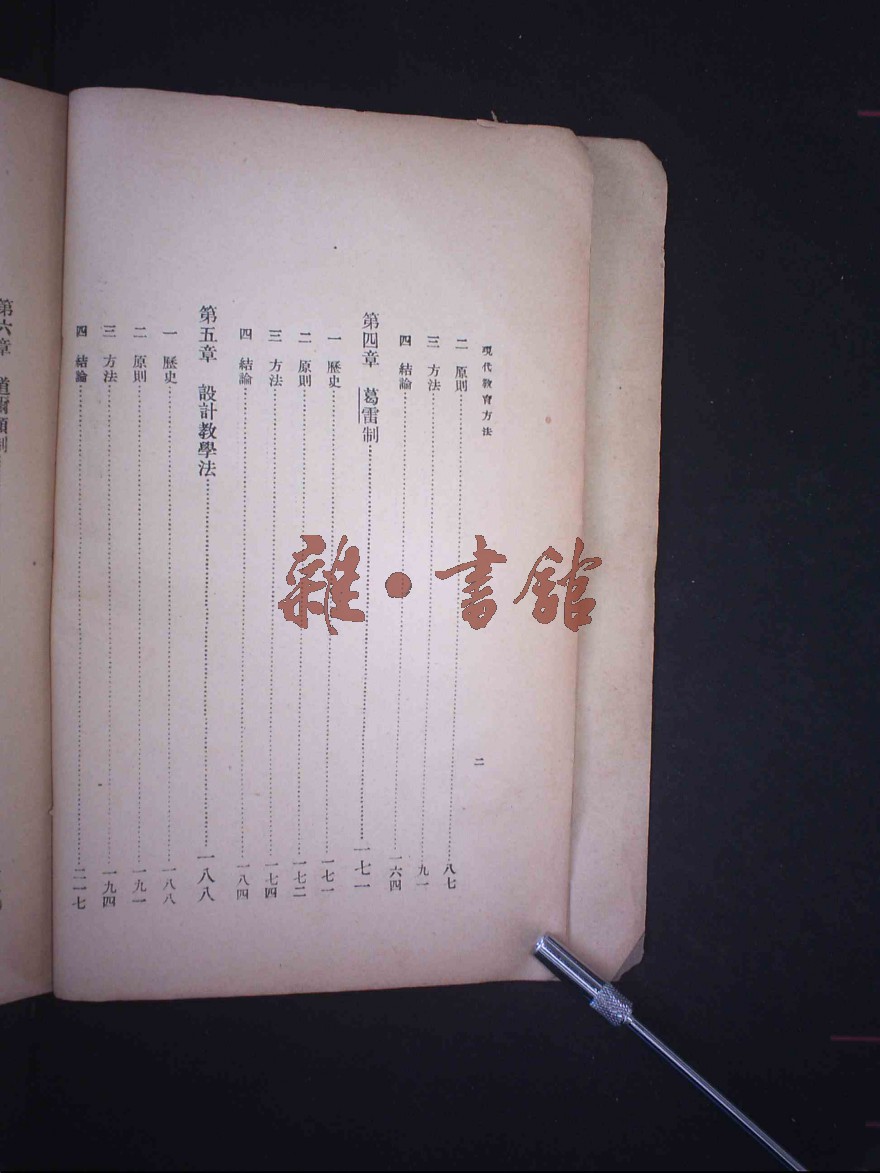 現代教育方法
二
二 原則 八七
三 方法 九一
四 結論 一六四
第四章 葛雷制 一七一
一 歷史 一七一
二 原則 一七二
三 方法 一七四
四 結論 一八四
第五章 設計教學法 一八八
一 歷史 一八八
二 原則 一九一
三 方法 一九四
四 結論 二一七
第六章 道爾頓制
雜·書館